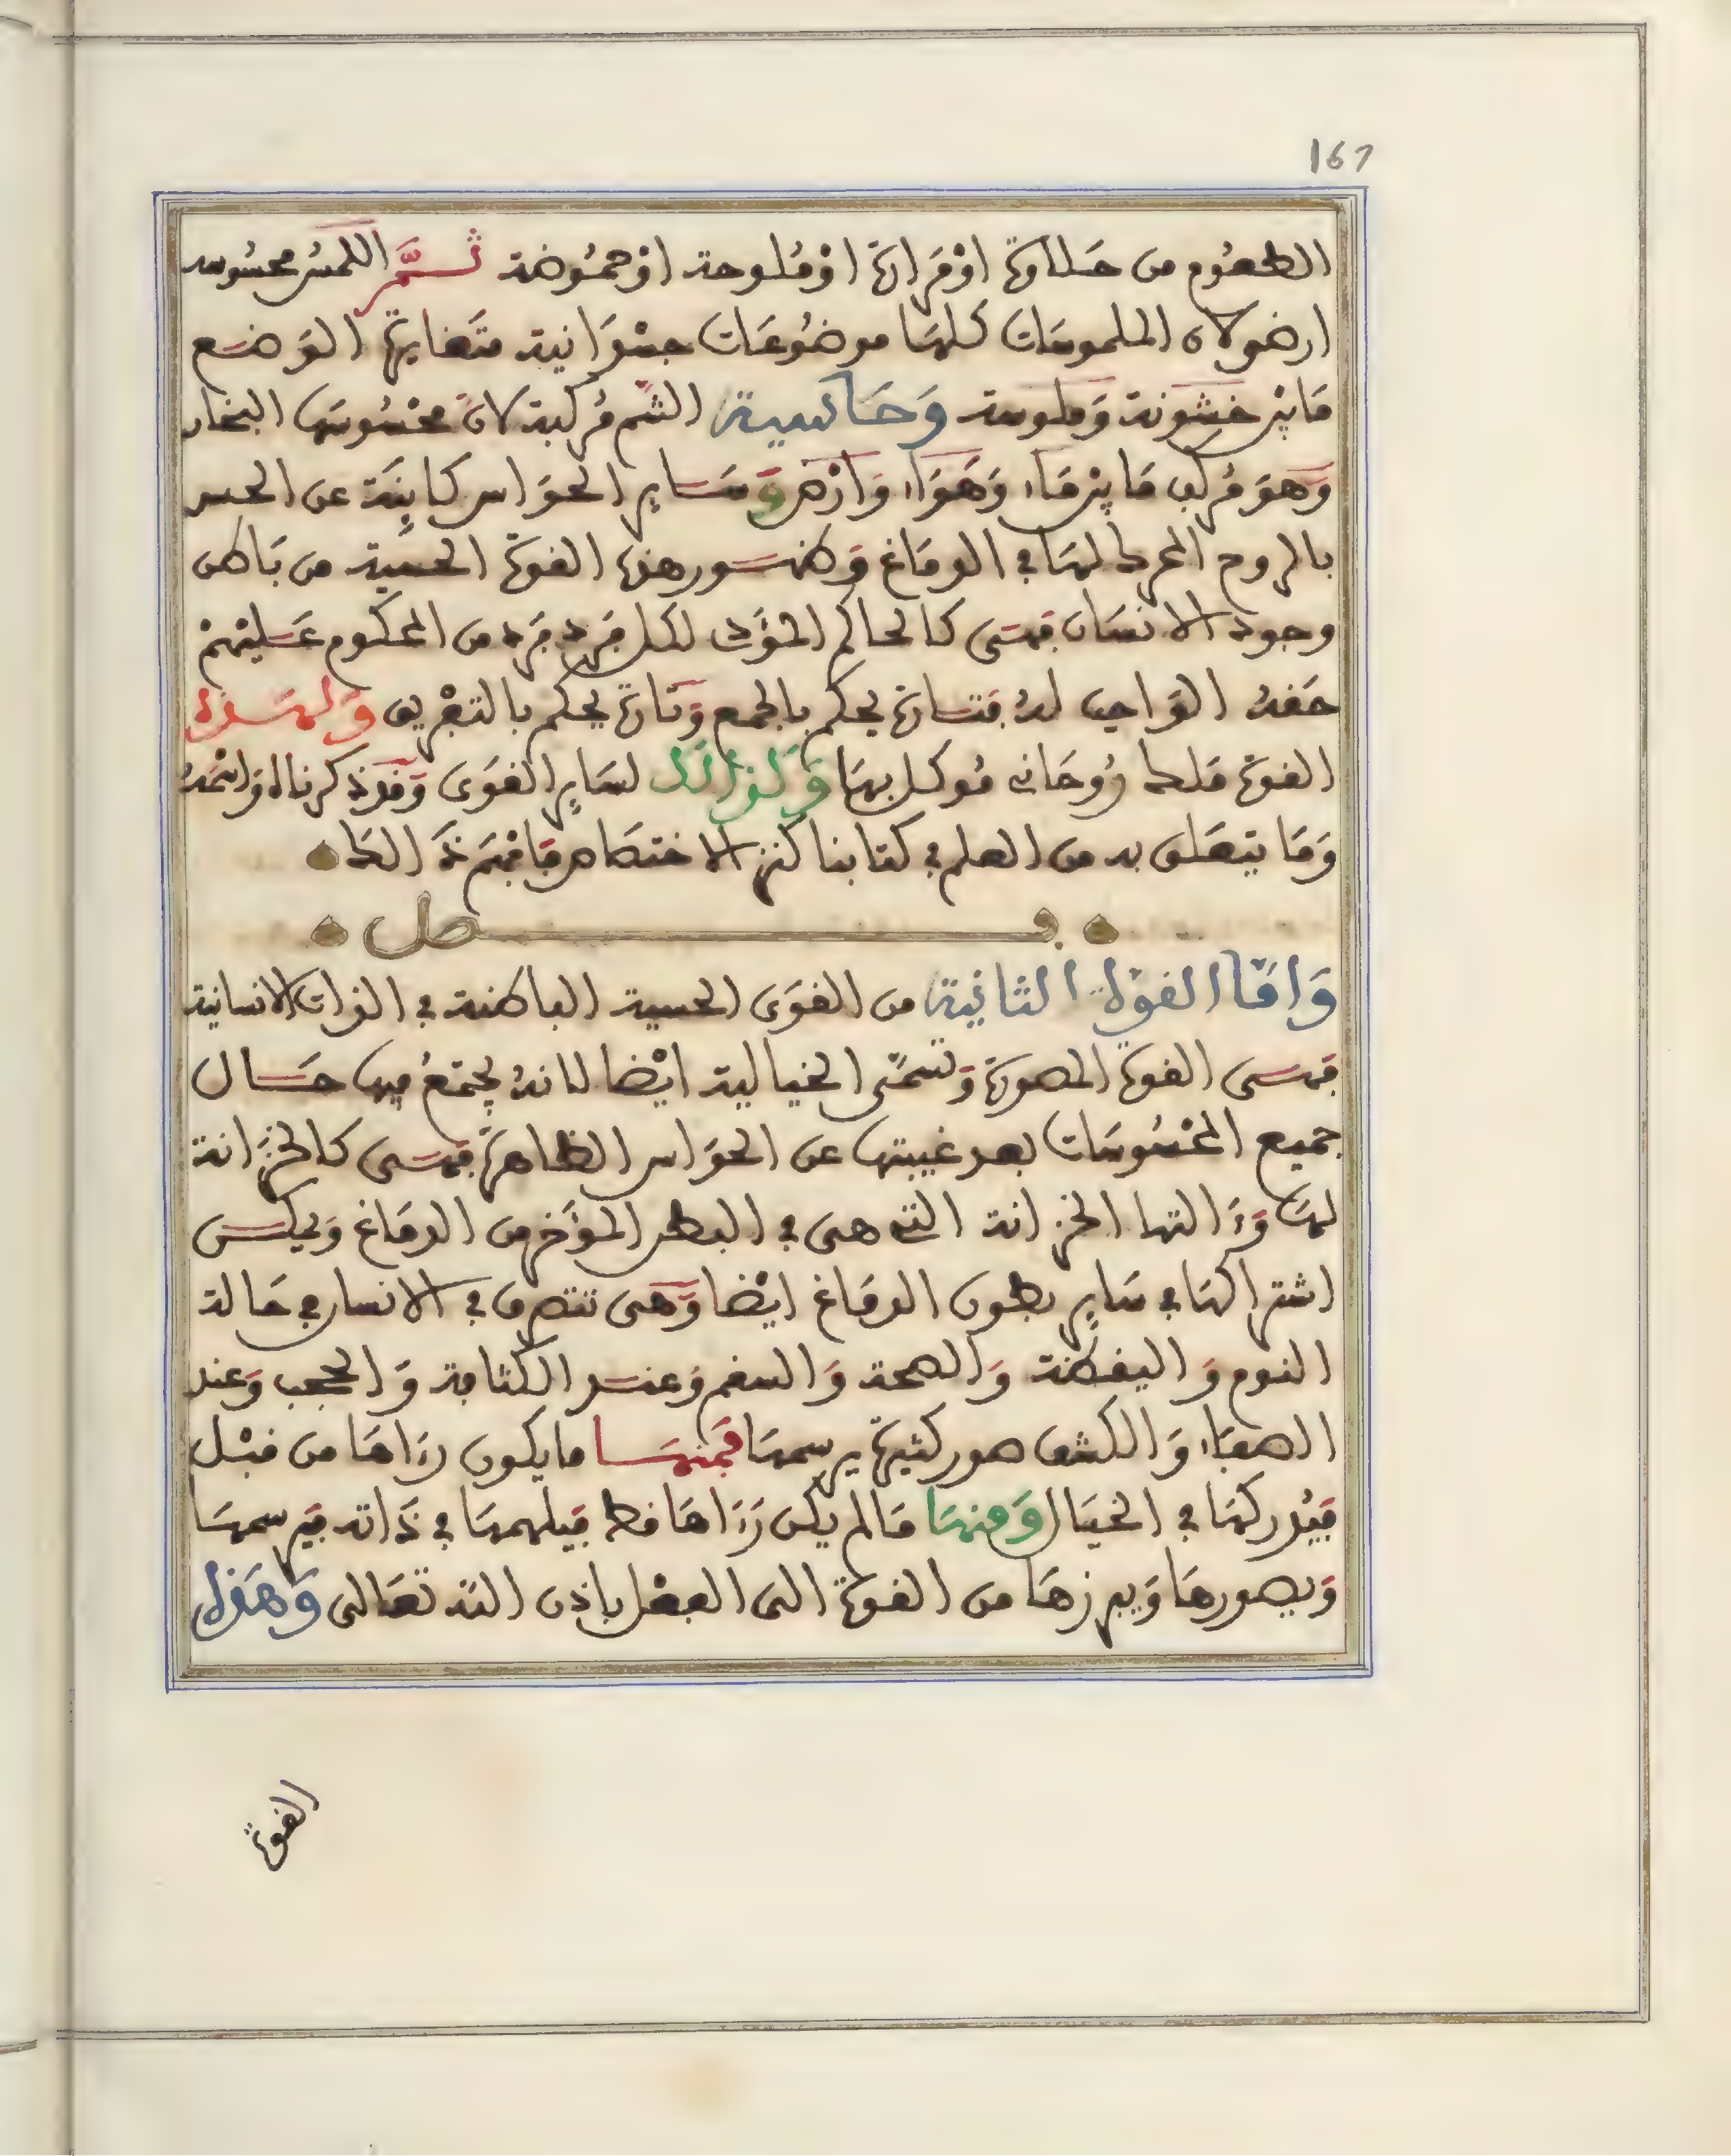 167
الطعُوم من حَلاوة اوْ مَرارة اوْ مُلوحة اوْ حمُوضة ثُمَّ اللمسُ محسُوسه
ارضي لان الملموسَات كلهَا موضُوعَات جسْمَانية متَغايرة الوَضع
مَا بيْن خشُونة وَملوسة وَحَاسة الشم مُركبة لانَّ محْسُوسهَا البخار
وَهوَ مُركب مَا بيْن مَاء وَهَوَاء وَارْض وَسَاير الحَوَاس كاينَة عن الحس
بالروح المحرك لهَا في الدمَاغ وَظهور هذه القوة الحسية من بَاطن
وجود الانسَان فهىَ كالحاكم المؤَدي لكل فَرد فَرد من المحكوم عَليْهمْ
حَقهُ الوَاجب لهُ فتَارة يحكم بالجمع وَتَارة يحكم بالتفْريق وَلهَذه
القوة مَلك رُوحَاني مُوكل بهَا وَكَذالكَ لسَاير القوَى وَقدْ ذكرنا الوَاسْمَهُ
وَمَا يتعَلق به من العلم في كتابنا كنز الاختصَاص فافهَمْ ذَالكَ
فصل
وَامَّا القوة الثانية من القوَى الحسية الباطنة في الذات الانسانية
فهىَ القوة المصورة وَتسمَّى الخيالية ايْضا لانهُ يجتمَعُ فيهَا حَال
جميع المحْسُوسَات بعد غيبتهَا عن الحوَاس الظاهرَة فهىَ كالخزَانة
لهَا وَءَالتها الخزانة التي هى في البطن المؤَخر من الدمَاغ وَيمكن
اشتراكهَا في سَاير بطون الدمَاغ ايْضا وَهىَ تتصرف في الانسان في حَالة
النوم وَاليقظة وَالصحة وَالسقم وَعند الكثافة وَالحجب وَعند
الصفَاء وَالكشف صور كثيرة يرسمهَا فَمنهَا ما يكون رءَاهَا من قبْل
فيُدركهَا في الخيَال وَمنهَا مَا لم يكن رَءَاهَا قط فيلهمهَا في ذَاته فيَرسمهَا
وَيصورهَا وَيبرزهَا من القوة الى الفعْل باذن الله تعَالى وَهَذه
القوة